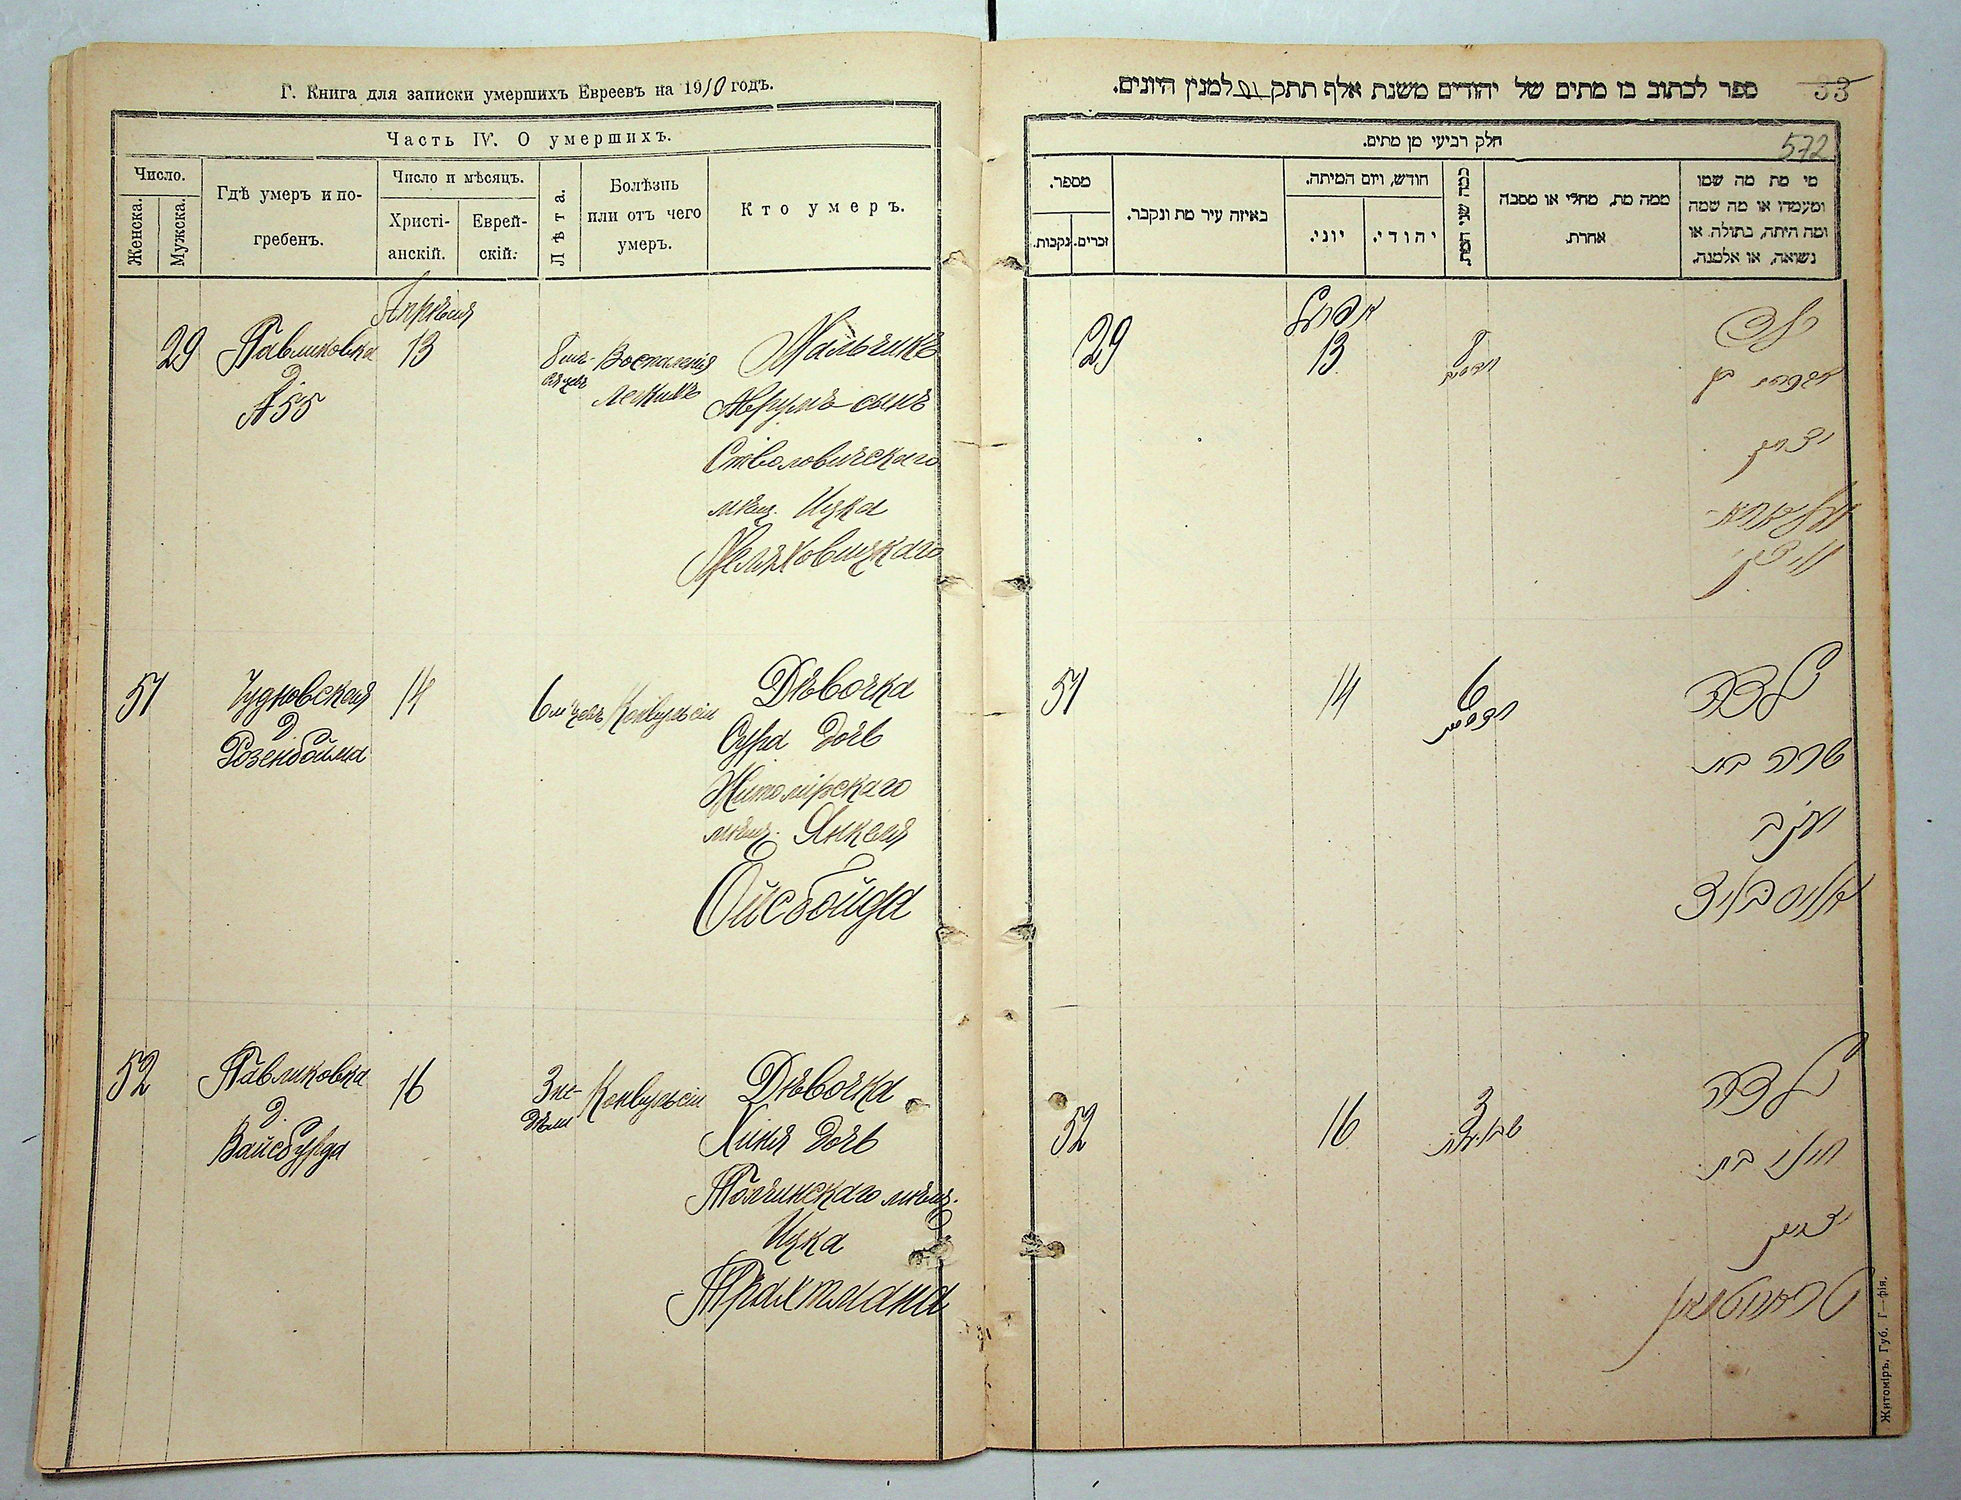 Г. Книга для записки умершихъ Евреевъ на 1910 годъ.
Часть IV. О умершихъ.
Число.
Женска.
Мужска.
Гдѣ умеръ и по-
гребенъ.
Число и мѣсяцъ.
Христі-
анскій.
Еврей-
скій.
Лѣта.
Болѣзнь
или отъ чего
умеръ.
Кто умеръ.
Апрѣля
29 Павликовка 13 8 мѣ- Воспаленія Мальчикъ
д сяцевъ легкихъ Аврумъ сынъ
№ 55
Стволовичскаго
мѣщ. Ицка
51 Чудновская 14 6 м'цевъ Конвульсіи Дѣвочка
д. Сура дочь
Розенбойма Житомірскаго
мѣщ. Янкеля
Ойсбойда
52 Павликовка 16 3 не- Конвульсіи Дѣвочка
д. дѣли Хиня дочь
Вайсбурда
мѣщ.
Ицка
Трахтмана
33
ספר לכתוב בו מתים של יהודים משנת אלף תתק למנין היונים.
572
חלק רביעי מן מתים.
מספר.
נקבות.
זכרים.
באיזה עיר מת ונקבר.
חודש, ויום המיתה.
יוני.
יהודי.
כמה שני המת.
ממה מת, מחלי או מסבה
אחרת.
מי מת מה שמו
ומעמדו או מה שמה
ומה היתה, בתולה או
נשואה, או אלמנה.
29 אפריל ילד
13 8 חדשים
אברהם ב
יצחק
51 14 6 חדשים ילדה
שרה בת
יעקב
אויסבויד
52 16 3 שבועות ילדה
חינה בת
יצחק
טראכטמאן
Житоміръ, Губ. Т—фія.